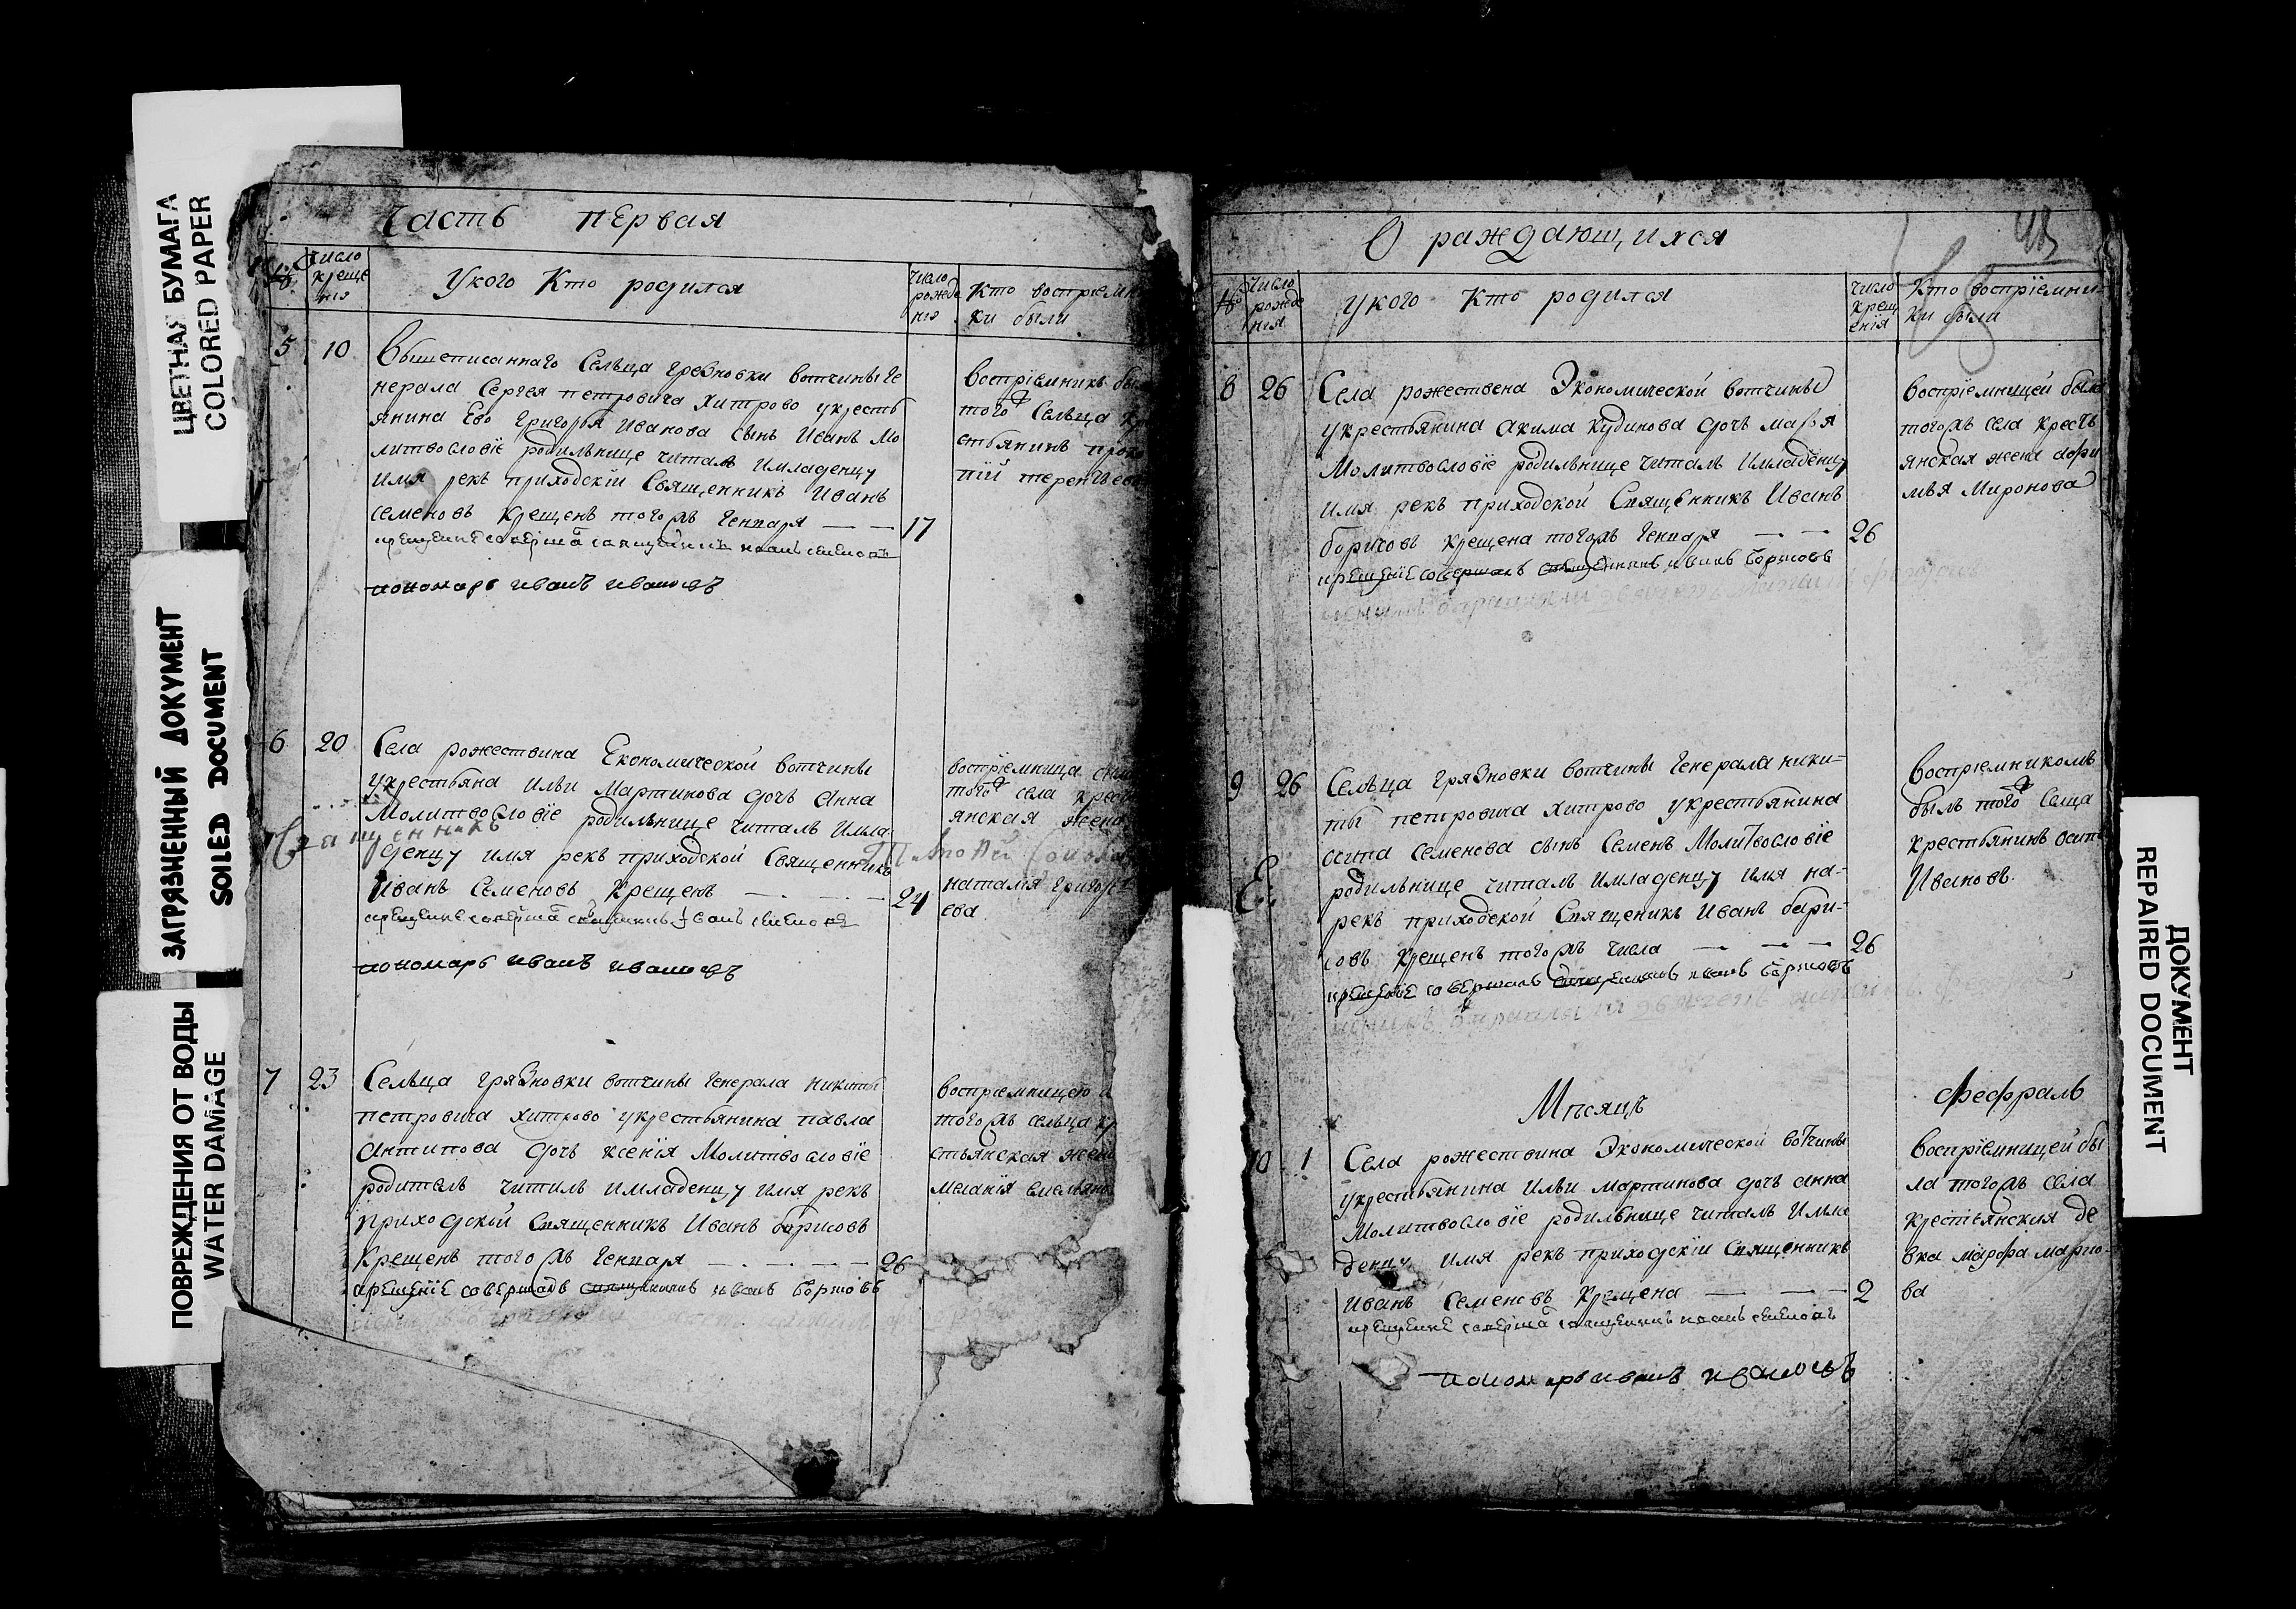 ЦВЕТНАЯ БУМАГА
COLORED PAPER
ЗАГРЯЗНЕННЫЙ ДОКУМЕНТ
SOILED DOCUMENT
ПОВРЕЖДЕНИЯ ОТ ВОДЫ
WATER DAMAGE
Часть первая
число
креще
нія
Укого Кто родился
число
рожде
нія
Кто воспріемни
ки были
5 10
Вышеписаннаго Сельца грезновки вотчины Ге
нерала Сергея петровича хитрово укресть
янина Ево Григорья Иванова сынъ Иванъ Мо
литвословіе родильнице читалъ имладенцу
имя рекъ приходскій Священникъ Иванъ
семеновъ крещенъ того жъ Генваря — — 17
пономарь иванъ ивановъ
воспріемникъ бы
того ж Сельца кр
стьянинъ прок
пій терентьев
6 20
Села рожествина Економической вотчины
укрестьяна Ильи Мартинова дочь Анна
Молитвословіе родильнице читалъ имла
денцу имя рекъ приходской Священникъ
Иванъ Семеновъ крещенъ — — — 24
пономарь иванъ ивановъ
воспріемница
того ж села крест
янская жена
наталія григорь
ева
7 23
Сельца грязновки вотчины Генерала никиты
петровича хитрово укрестьянина павла
Антипова дочь ксенія Молитвословіе
родитель читилъ имладенцу имя рекъ
приходской Священникъ Иванъ борисовъ
Крещенъ того жъ Генваря — — — — 26
крещеніе совершалъ священникъ иванъ борисовъ
воспріемницею
того жъ сельца кр
стьянская жен
меланія емельяно
О раждающихся
43
число
рожде
нія
укого Кто родился
число
крещ
енія
Кто воспріемни
ки были
8 26
Села рожествена Экономической вотчины
укрестьянина акима кудинова дочь марья
Молитвословіе родильнице читалъ имладенцу
имя рекъ приходской Священникъ Иванъ
борисовъ крещена того жъ Генваря — — 26
крещеніе совершалъ священникъ иванъ борисовъ
воспріемницей была
того жъ села кресть
янская жена афи
мья Миронова
9 26
Сельца грязновки вотчины Генерала ники-
ты петровича хитрово укрестьянина
осипа семенова сынъ Семенъ Молитвословіе
родильнице читалъ имладенцу имя на-
рекъ приходской Священикъ Иванъ бори-
совъ крещенъ того жъ числа — — — 26
крещеніе совершалъ священникъ иванъ борисовъ
воспріемникомъ
былъ того ж Селца
крестьянинъ осипъ
Ивановъ
Мѣсяцъ Фефраль
10 1
Села рожествина Экономической вотчины
укрестьянина Ильи мартинова дочь анна
Молитвословіе родильнице читалъ Имла
денцу имя рекъ приходскій священникъ
Иванъ Семеновъ крещена — — — 2
пономарь иванъ ивановъ
воспріемницей бы
ла того жъ села
крестьянская де
вка марфа марко-
ва
ДОКУМЕНТ
REPAIRED DOCUMENT